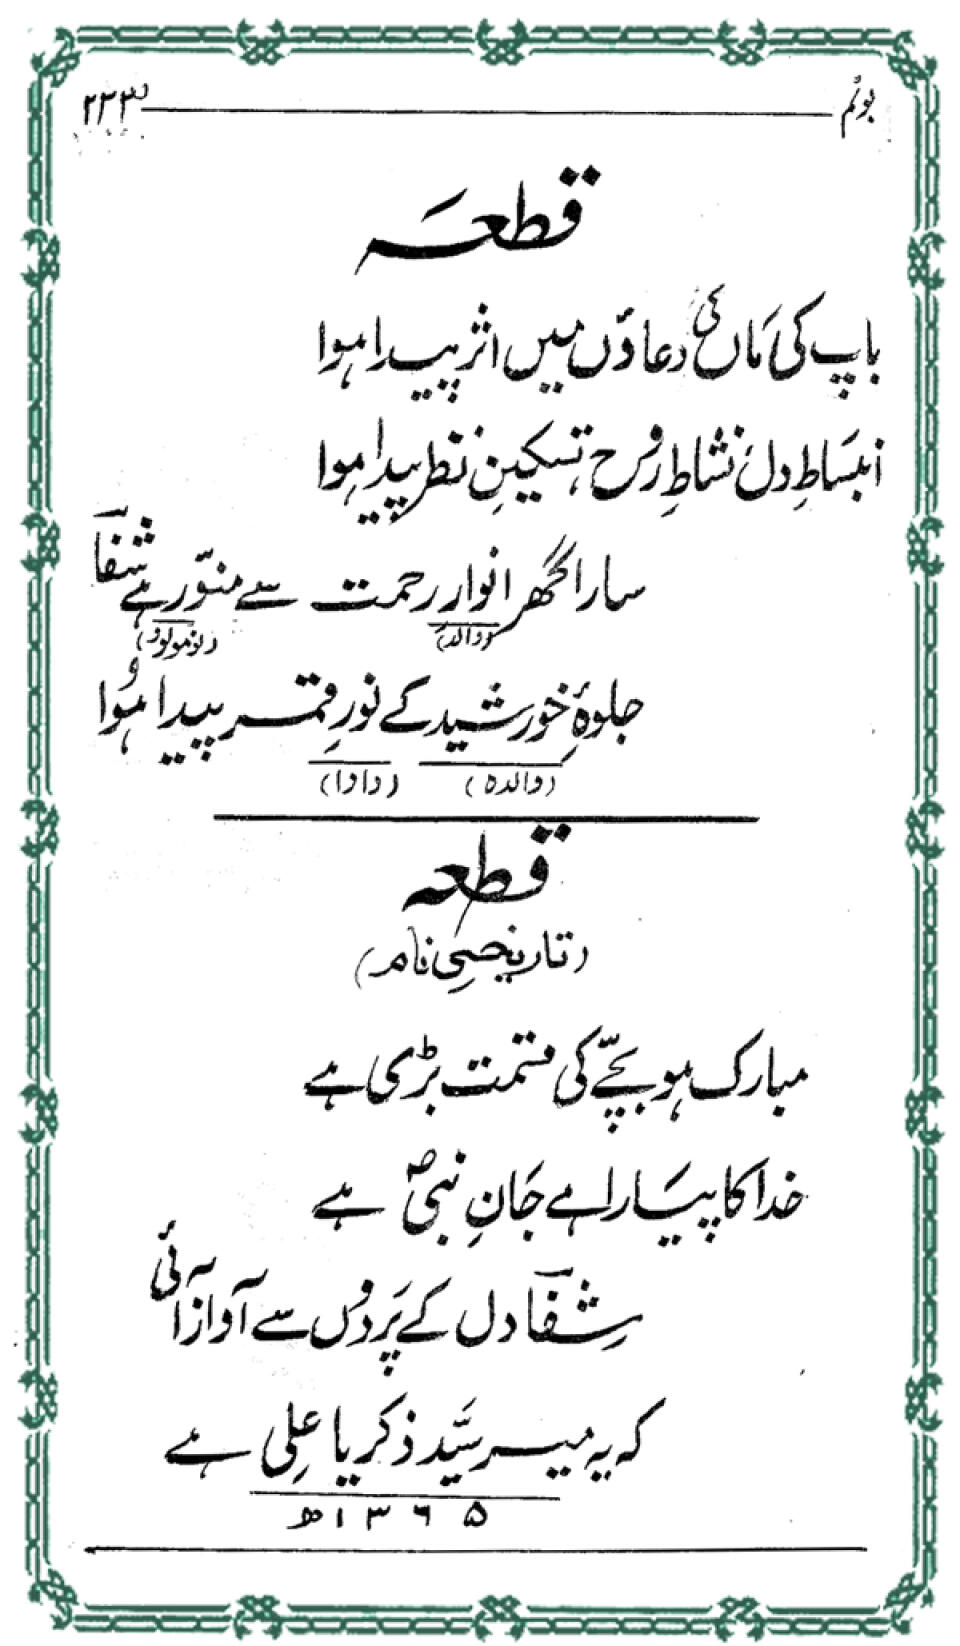 بوئم ۲۳۳
قطعہ
باپ کی ماں کی دعاؤں میں اثر پیدا ہوا
انبساطِ دل نشاطِ روح تسکینِ نظر پیدا ہوا
سارا گھر انوارِ رحمت سے منوّر ہے شفاؔ
(والد) (نومولود)
جلوۂ خورشید کے نورِ قمر پیدا ہوا
(والدہ) (دادا)
قطعہ
(تاریخی نام)
مبارک ہو بچّے کی قسمت بڑی ہے
خدا کا پیارا ہے جانِ نبیؐ ہے
شفاؔ دل کے پردوں سے آواز آئی
کہ یہ میر سیّد ذکریا علی ہے
۱۳۶۵ھ